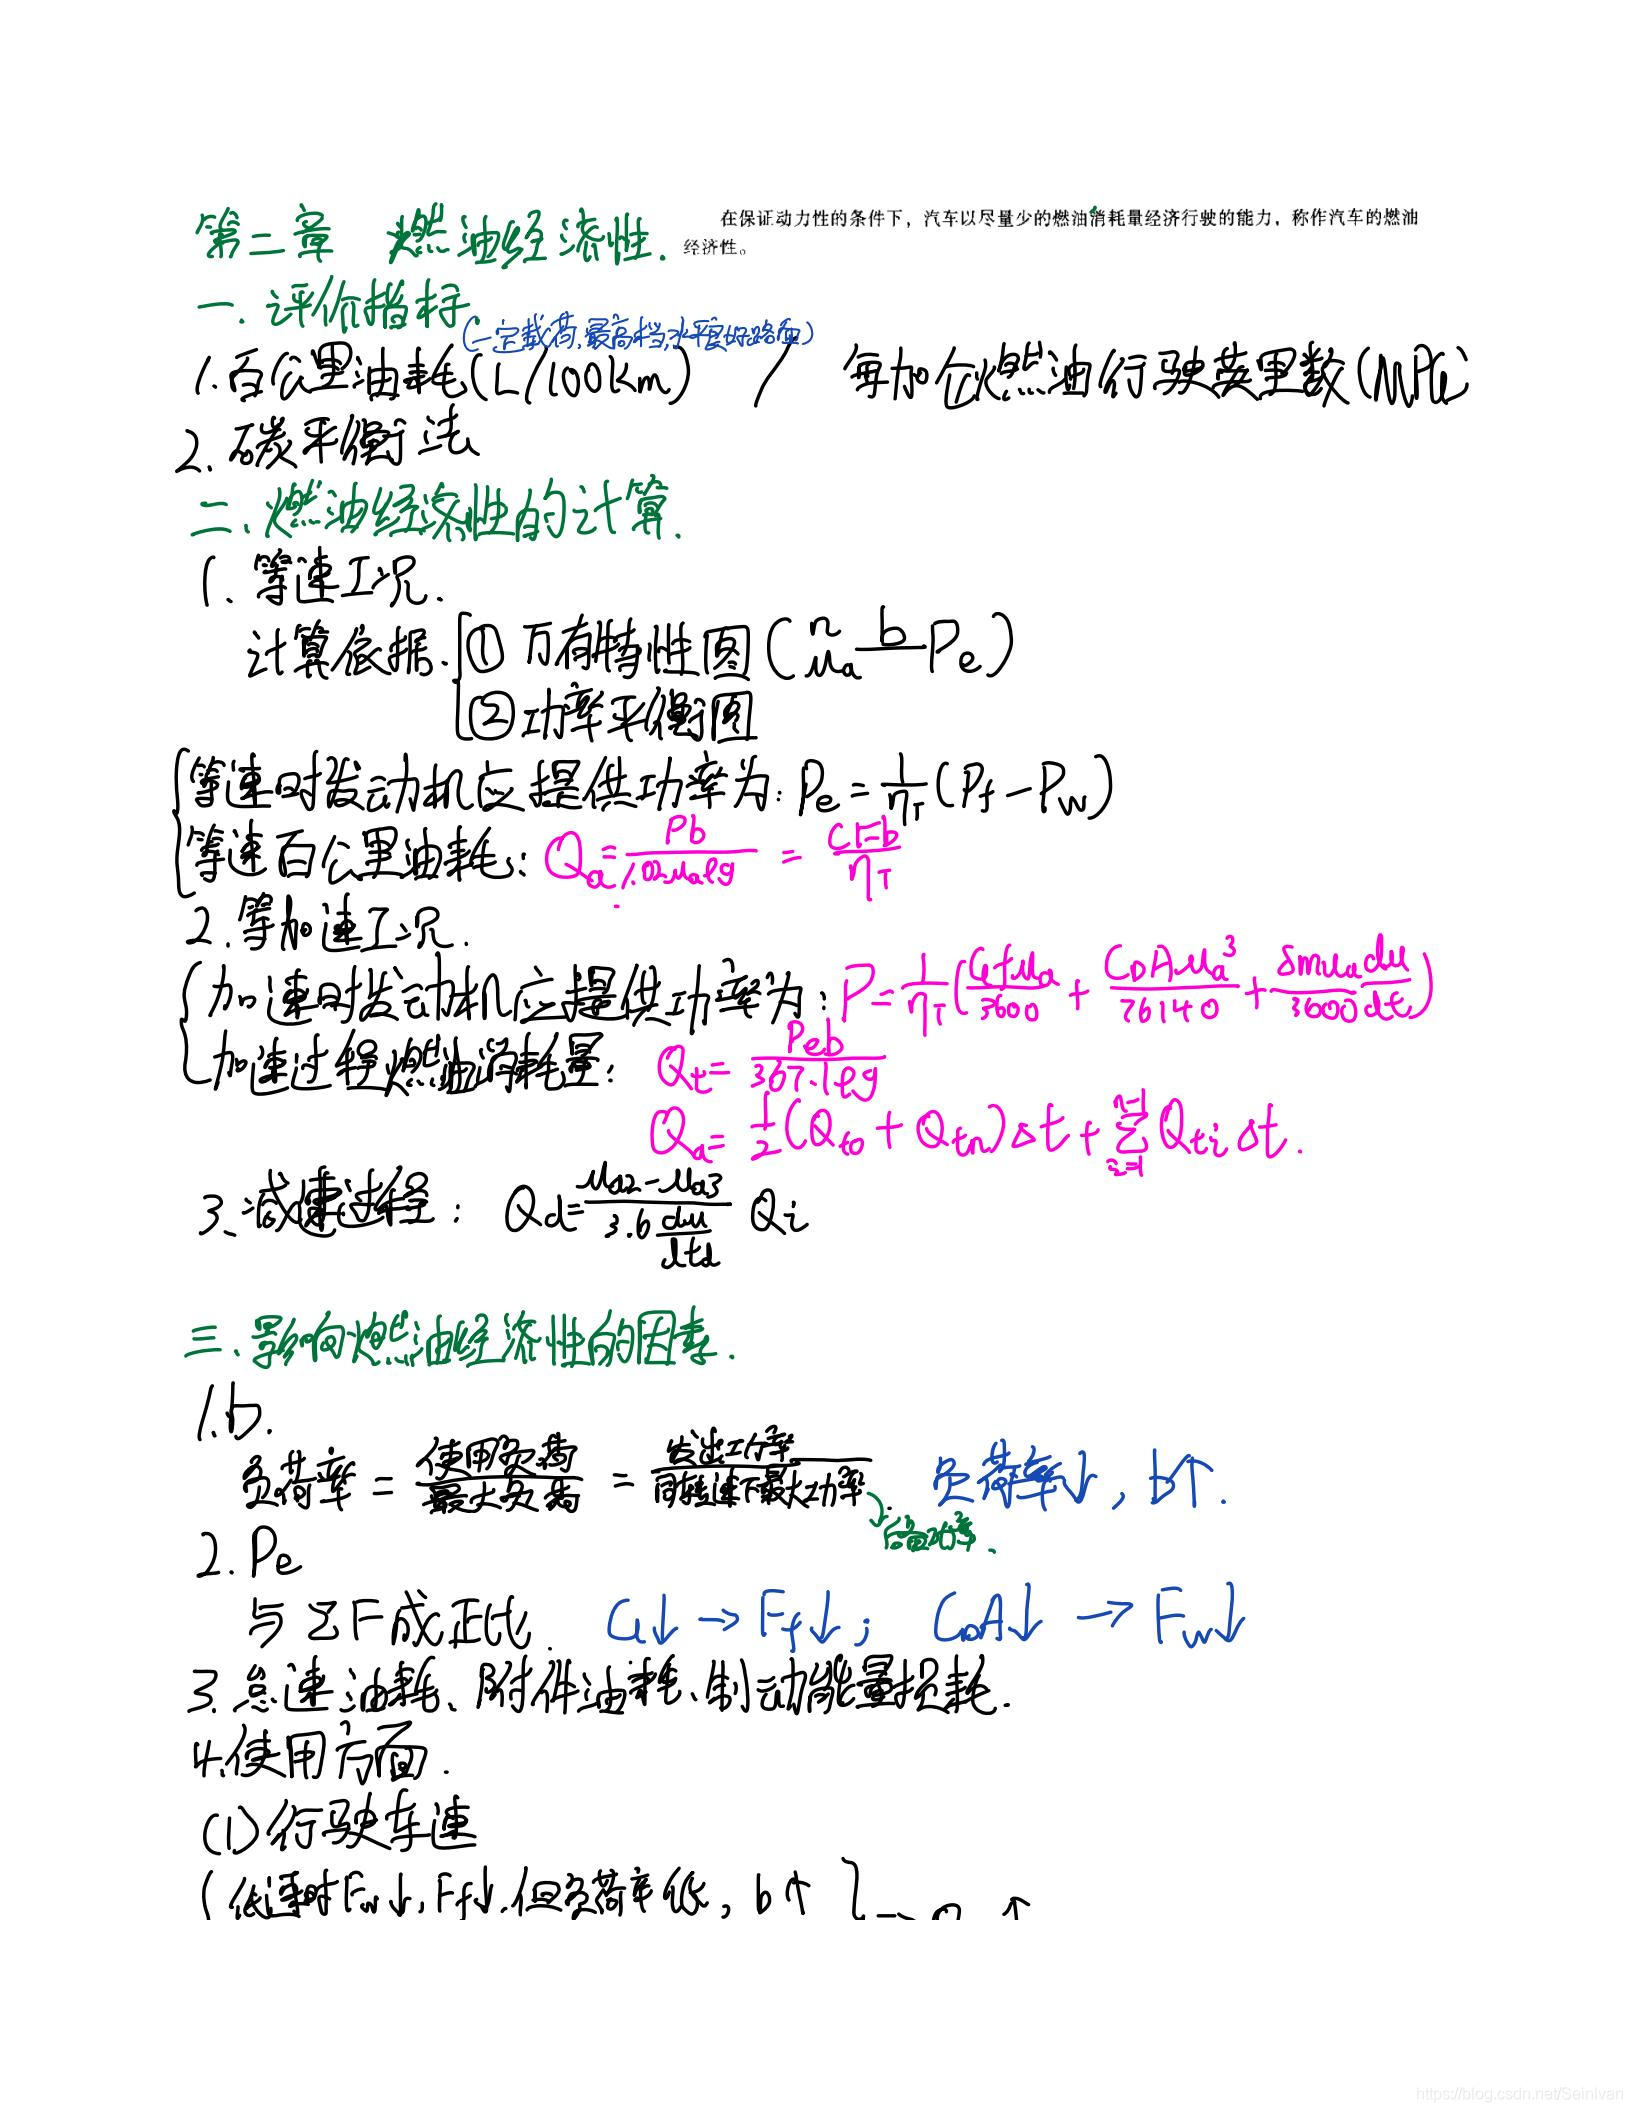 第二章 燃油经济性. 在保证动力性的条件下，汽车以尽量少的燃油消耗量经济行驶的能力，称作汽车的燃油
经济性。
一. 评价指标.
(一定载荷,最高档,水平良好路面)
1. 百公里油耗(L/100km) / 每加仑燃油行驶英里数(MPG)
2. 碳平衡法
二. 燃油经济性的计算.
1. 等速工况.
计算依据. ① 万有特性图 ( n ua — b — Pe )
② 功率平衡图
等速时发动机应提供功率为: Pe = 1/ηT (Pf - Pw)
等速百公里油耗: Qa = Pb/1.02uaρg = CFb/ηT
2. 等加速工况.
加速时发动机应提供功率为: P = 1/ηT (Gfua/3600 + CDAua³/76140 + δmua/3600 du/dt)
加速过程燃油消耗量: Qt = Peb/367.1ρg
Qa = 1/2 (Qt0 + Qtn)Δt + Σ(i=1, n-1) Qti Δt.
3. 减速过程: Qd = (ua2 - ua3)/(3.6 du/dtd) Qi
三. 影响燃油经济性的因素.
1. b.
负荷率 = 使用负荷/最大负荷 = 发出功率/同转速下最大功率. 负荷率↓, b↑.
后备功率.
2. Pe
与ΣF成正比. G↓ → Ff↓; CDA↓ → Fw↓
3. 怠速油耗、附件油耗、制动能量损耗.
4. 使用方面.
(1) 行驶车速
低速时Fw↓, Ff↓. 但负荷率低, b↑
https://blog.csdn.net/SeinIvan